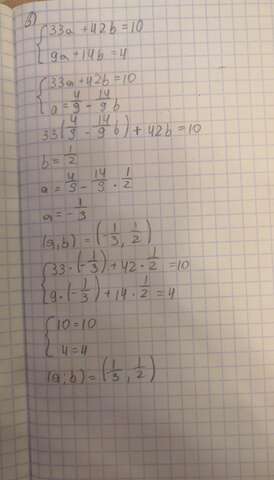 в)
{33a + 42b = 10
9a + 14b = 4
{33a + 42b = 10
a = 4/9 - 14/9 b
33(4/9 - 14/9 b) + 42b = 10
b = 1/2
a = 4/9 - 14/9 · 1/2
a = -1/3
(a,b) = (-1/3, 1/2)
{33·(-1/3) + 42·1/2 = 10
9·(-1/3) + 14·1/2 = 4
{10 = 10
4 = 4
(a;b) = (1/3, 1/2)